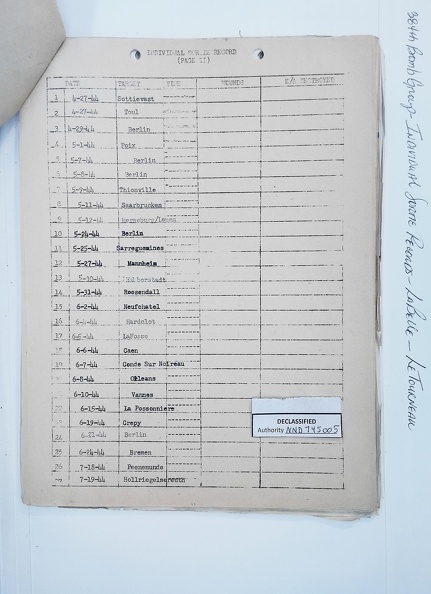 INDIVIDUAL SORTIE RECORD
(PAGE II)
DATE TARGET TIME WOUNDS E/A DESTROYED
1 4-27-44 Sottievast
2 4-27-44 Toul
3 4-29-44 Berlin
4 5-1-44 Poix
5 5-7-44 Berlin
6 5-8-44 Berlin
7 5-9-44 Thionville
8 5-11-44 Saarbrucken
9 5-12-44
10 5-24-44 Berlin
11 5-25-44 Sarreguemines
12 5-27-44 Mannheim
13 5-30-44 Halberstadt
14 5-31-44 Roosendall
15 6-2-44 Neufchatel
16 6-4-44 Hardelot
17 6-5-44 LaFosse
18 6-6-44 Caen
19 6-7-44 Conde Sur Noireau
6-8-44 Orleans
6-10-44 Vannes
6-15-44 La Possonniere
6-19-44 Crepy
24 6-21-44 Berlin
25 6-24-44 Bremen
26 7-18-44 Peenemunde
27 7-19-44
DECLASSIFIED
Authority NND 745005
384th Bomb Group - Individual Sortie Records - LaBelle - LeTourneau